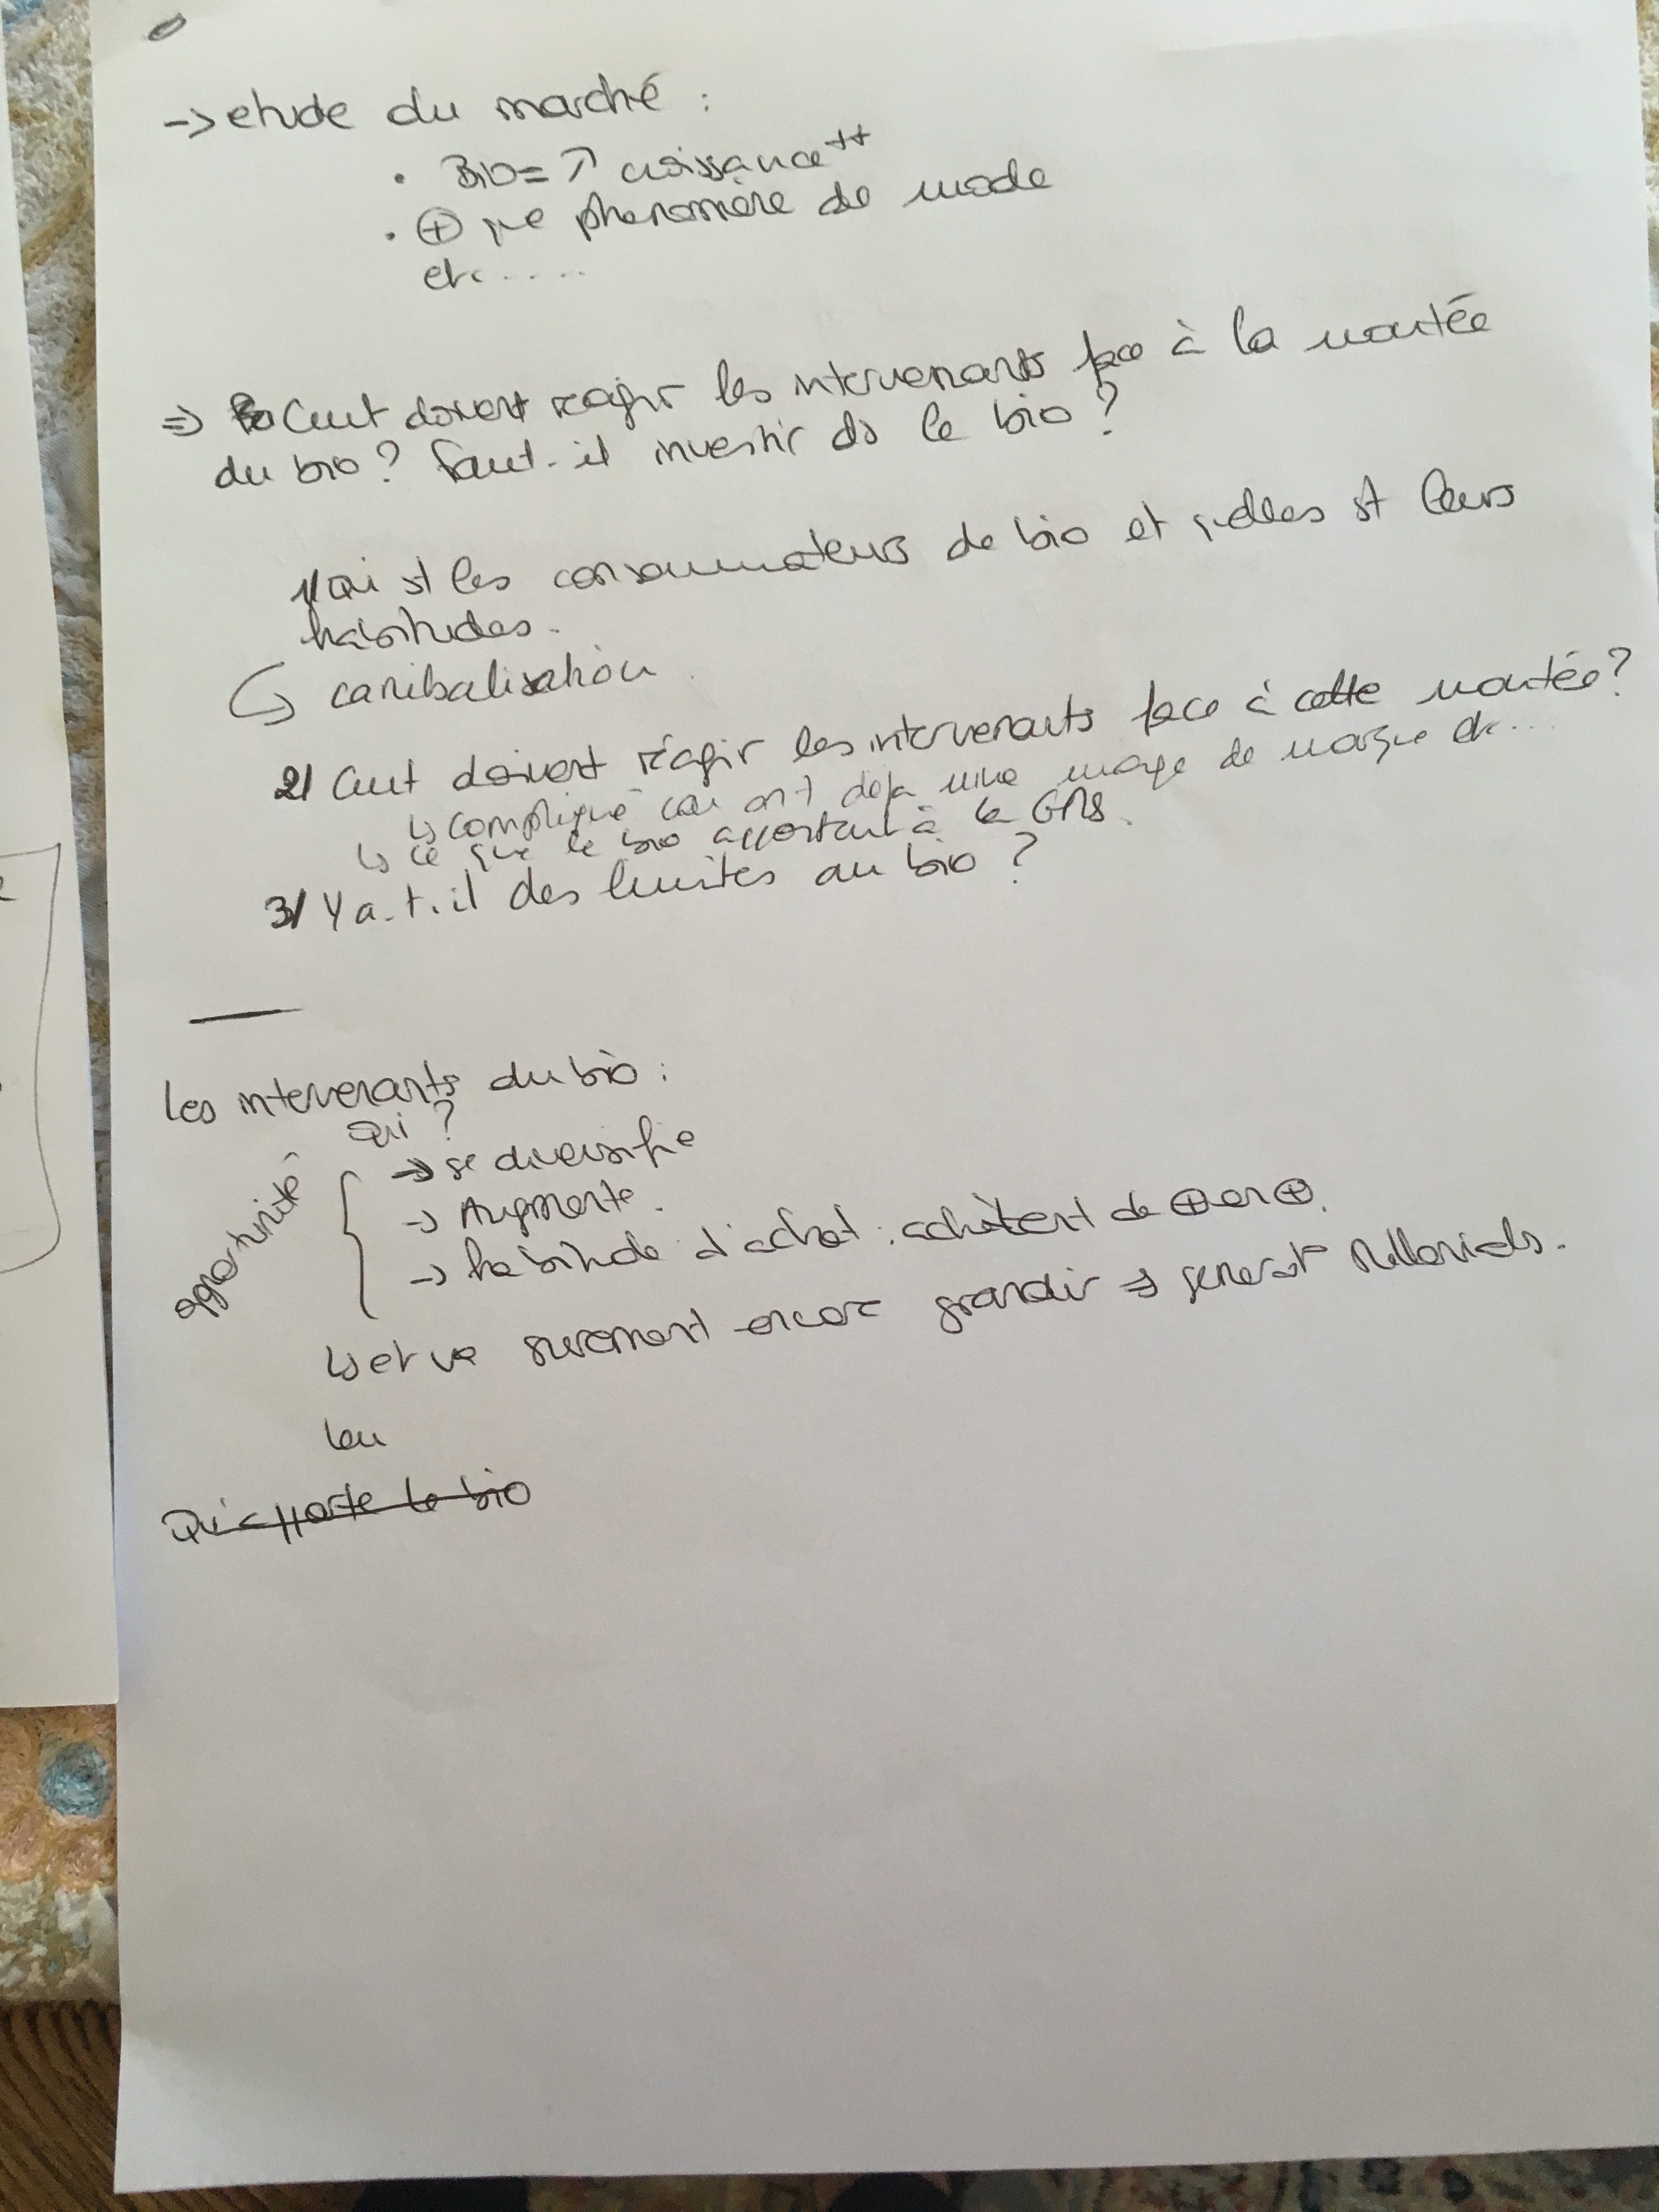 -> etude du marché :
• Bio = ↗ croissance ++
• ⊕ que phenomène de mode
etc.....
=> Cmt doivent reagir les intervenants face à la montée
du bio ? Faut-il investir ds le bio ?
1/ Qui st les consommateurs de bio et quelles st leurs
habitudes.
↪ canibalisation.
2/ Cmt doivent réagir les intervenants face à cette montée ?
↳ compliqué car ont déja une image de marque etc...
↳ ce que le bio apportent à la GMS.
3/ Y a-t-il des limites au bio ?
Les intervenants du bio :
Qui ?
opportunité
-> se diversifie
-> Augmente.
-> habitude d'achat : achètent de ⊕ en ⊕.
↳ et va surement encore grandir => generat° Millenials.
Leu
Qu'apporte le bio